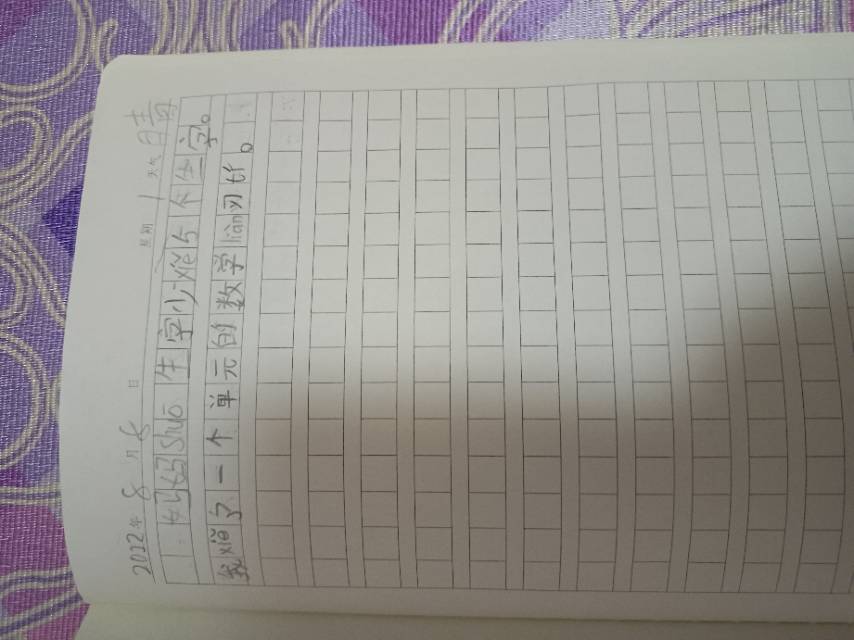 2022年8月6日 星期 1 天气 晴
妈妈shuō生字少xiě5个生字。
我xiě了一个单元的数学liàn习